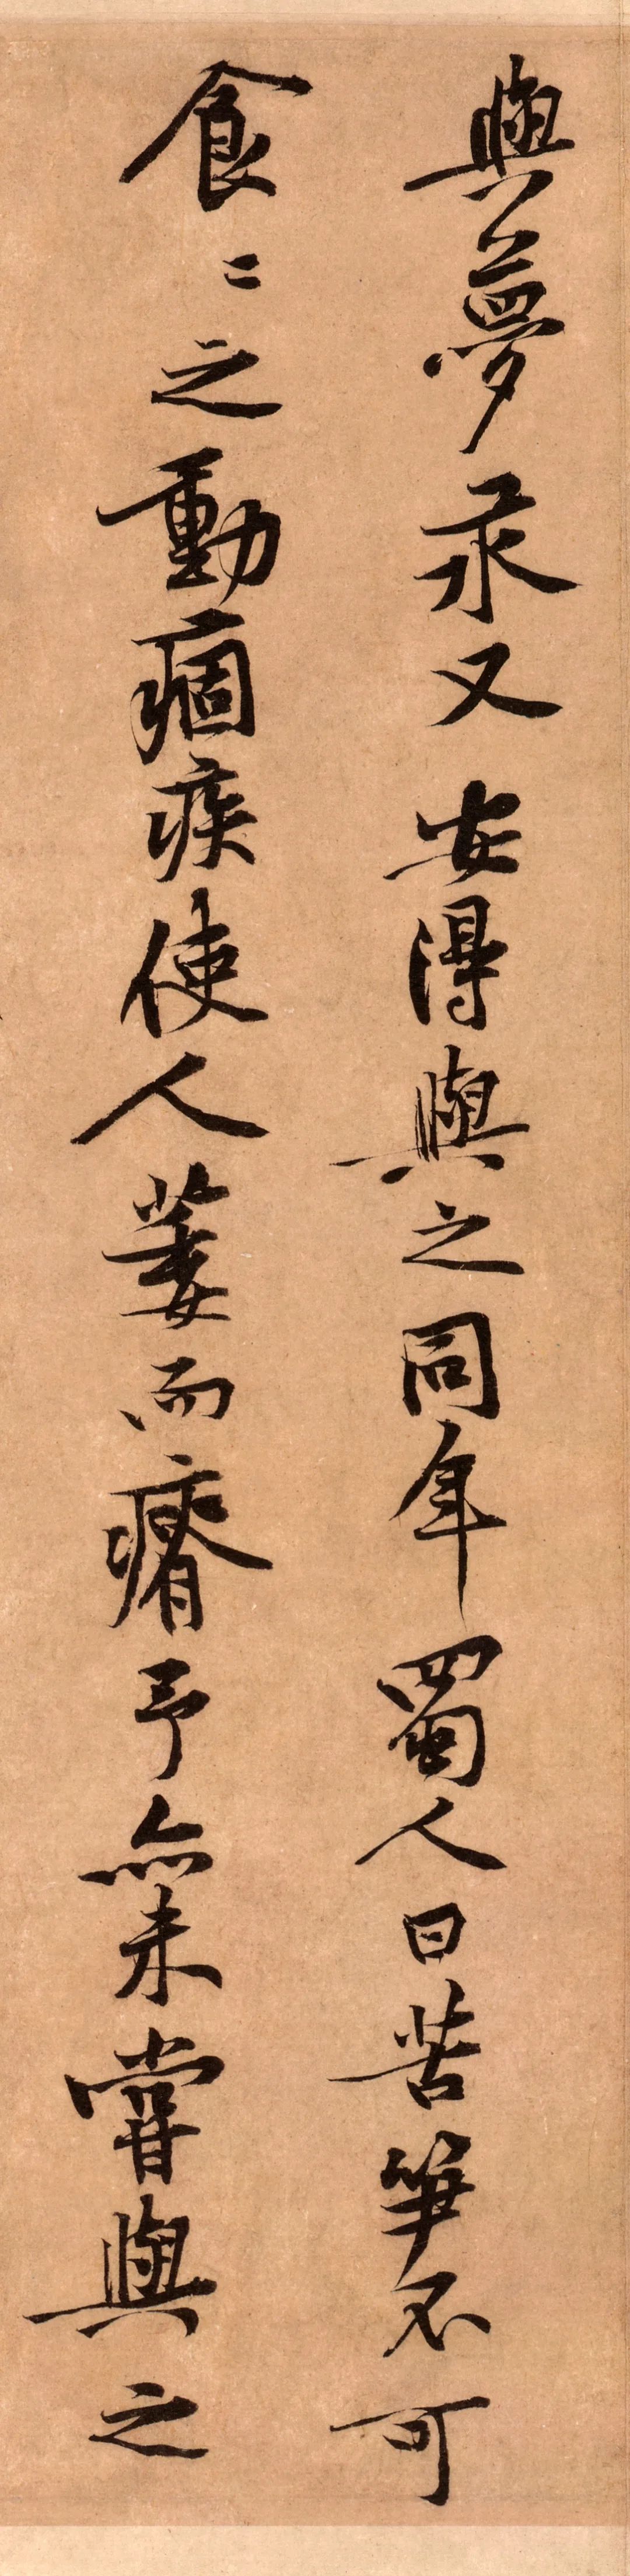 與夢永又安得與之同年蜀人曰苦笋不可
食〻之動痼疾使人萎而瘠予亦未嘗與之